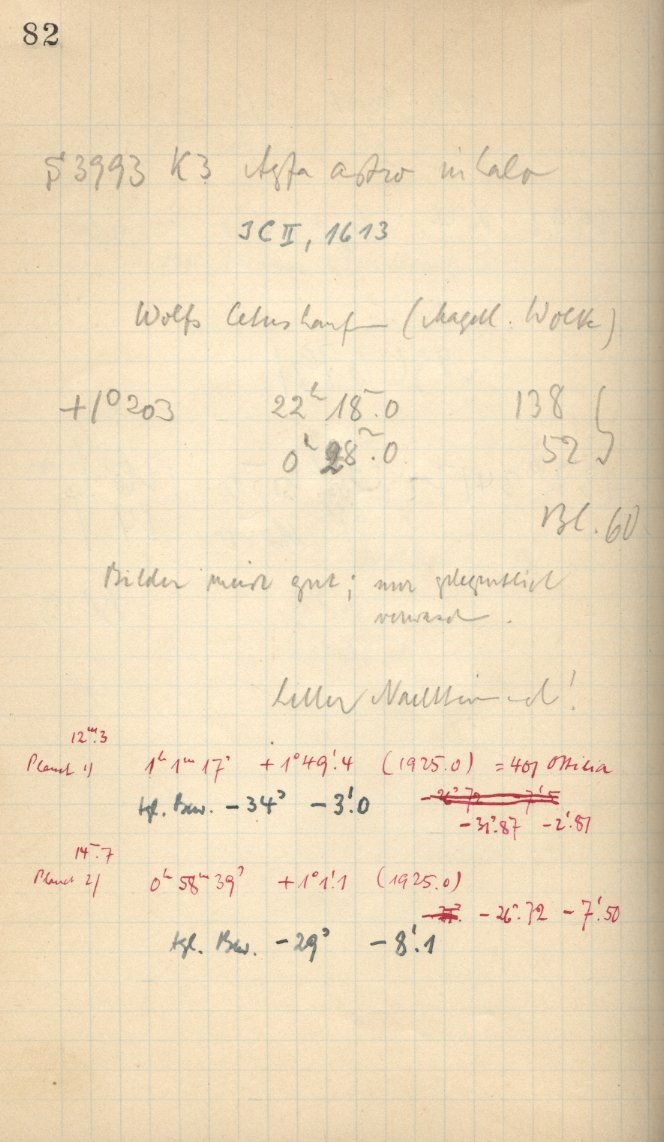 82
3993 K3 Agfa astro
IC II, 1613
Wolfs Cetushaufen (Magell. Wolke)
+1° 203 22ʰ 18ᵐ.0 138
0ʰ 28ᵐ.0 52
Bl. 60
Bilder meist gut; nur gelegentlich
verwasch.
Heller Nachthimmel!
12ᵐ.3
Planet 1) 1ʰ 1ᵐ 17ˢ +1° 49'.4 (1925.0) = 401 Ottilia
tgl. Bew. −34ˢ −3'.0
−31ˢ.87 −2'.81
14ᵐ.7
Planet 2) 0ʰ 58ᵐ 39ˢ +1° 1'.1 (1925.0)
−26ˢ.72 −7'.50
tgl. Bew. −29ˢ −8'.1